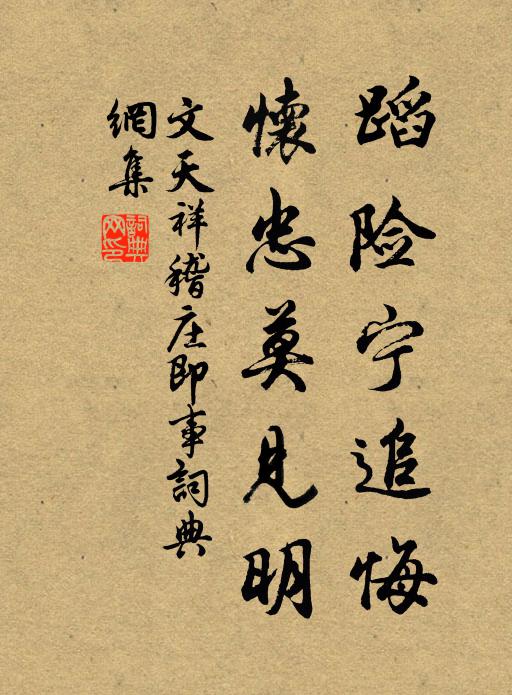 蹈险宁追悔
懷忠莫見明
文天祥稽庄即事詞典
網集
詞典
网印